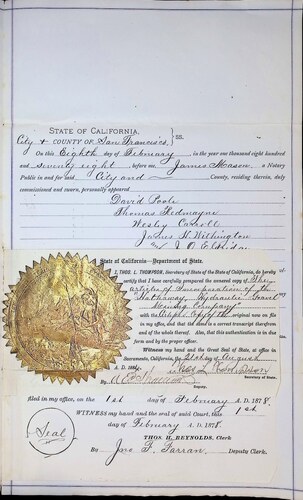 STATE OF CALIFORNIA,
City & COUNTY OF San Francisco, } SS.
On this Eighth day of February in the year one thousand eight hundred
and seventy eight before me James Mason a Notary
Public in and for said City and County, residing therein, duly
commissioned and sworn, personally appeared
David Poole
Thomas Redmayne
Wesley Carroll
James H. Withington
and J. O.
State of California—Department of State.
I, THOS. L. THOMPSON, Secretary of State of the State of California, do hereby
certify that I have carefully compared the annexed copy of
Articles of Incorporation of the
Hathaway Hydraulic Gravel
Mining Company
with the original now on file
in my office, and that the same is a correct transcript therefrom
and of the whole thereof. Also, that this authentication is in due
form and by the proper officer.
Witness my hand and the Great Seal of State, at office in
Sacramento, California, the day of August
A. D. 188
Secretary of State.
By
Deputy.
filed in my office, on the 1st day of February A. D. 1878.
WITNESS my hand and the seal of said Court, this 1st
day of February A. D. 1878.
Seal
THOS. H. REYNOLDS, Clerk
By Jno F. Farran. Deputy Clerk.